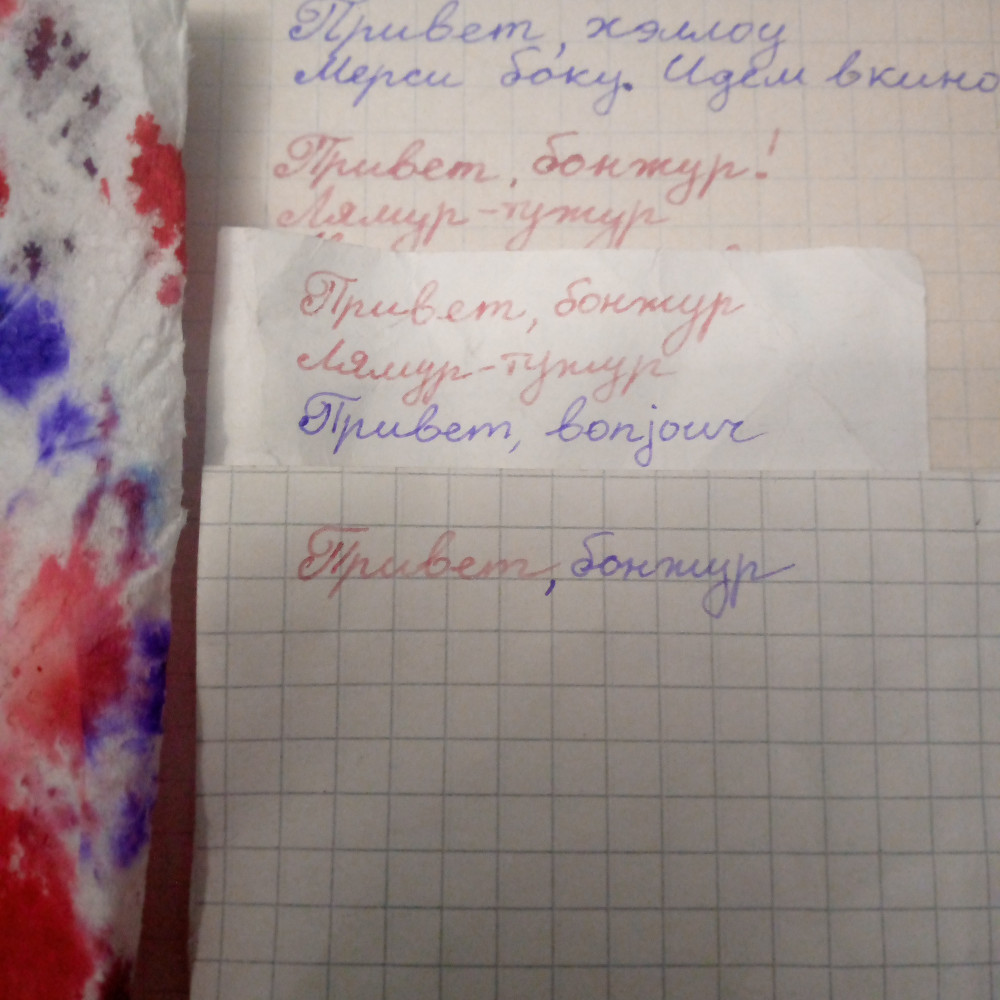 Привет, хэллоу
Мерси боку. Идем в кино
Привет, бонжур!
Лямур-тужур
Привет, бонжур
Лямур-тужур
Привет, bonjour
Привет, бонжур